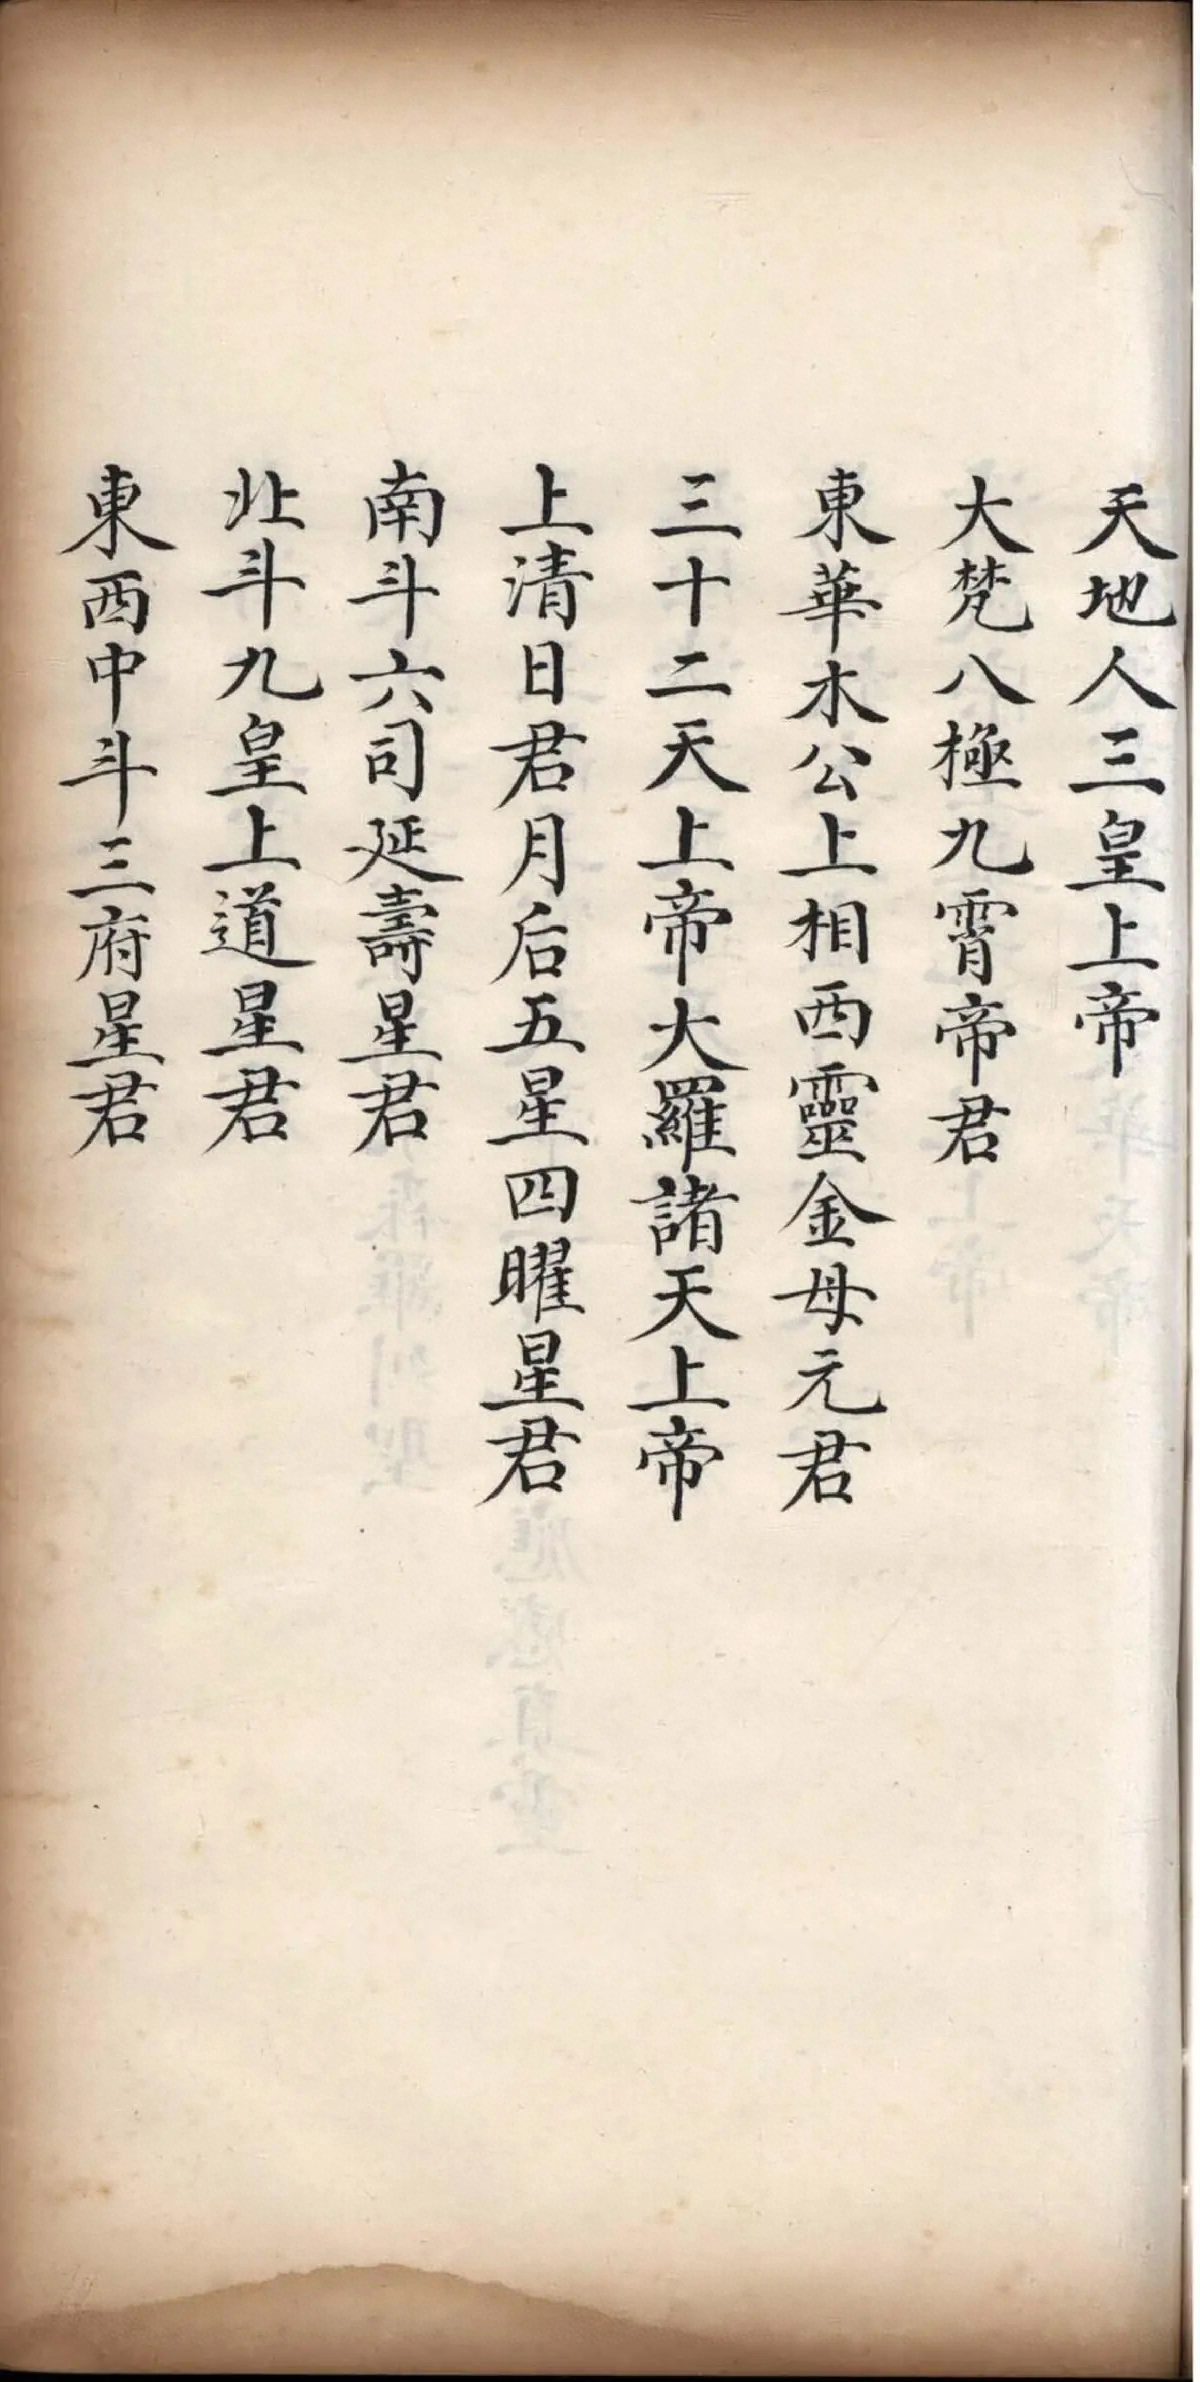 天地人三皇上帝
大梵八極九霄帝君
東華木公上相西靈金母元君
三十二天上帝大羅諸天上帝
上清日君月后五星四曜星君
南斗六司延壽星君
北斗九皇上道星君
東西中斗三府星君